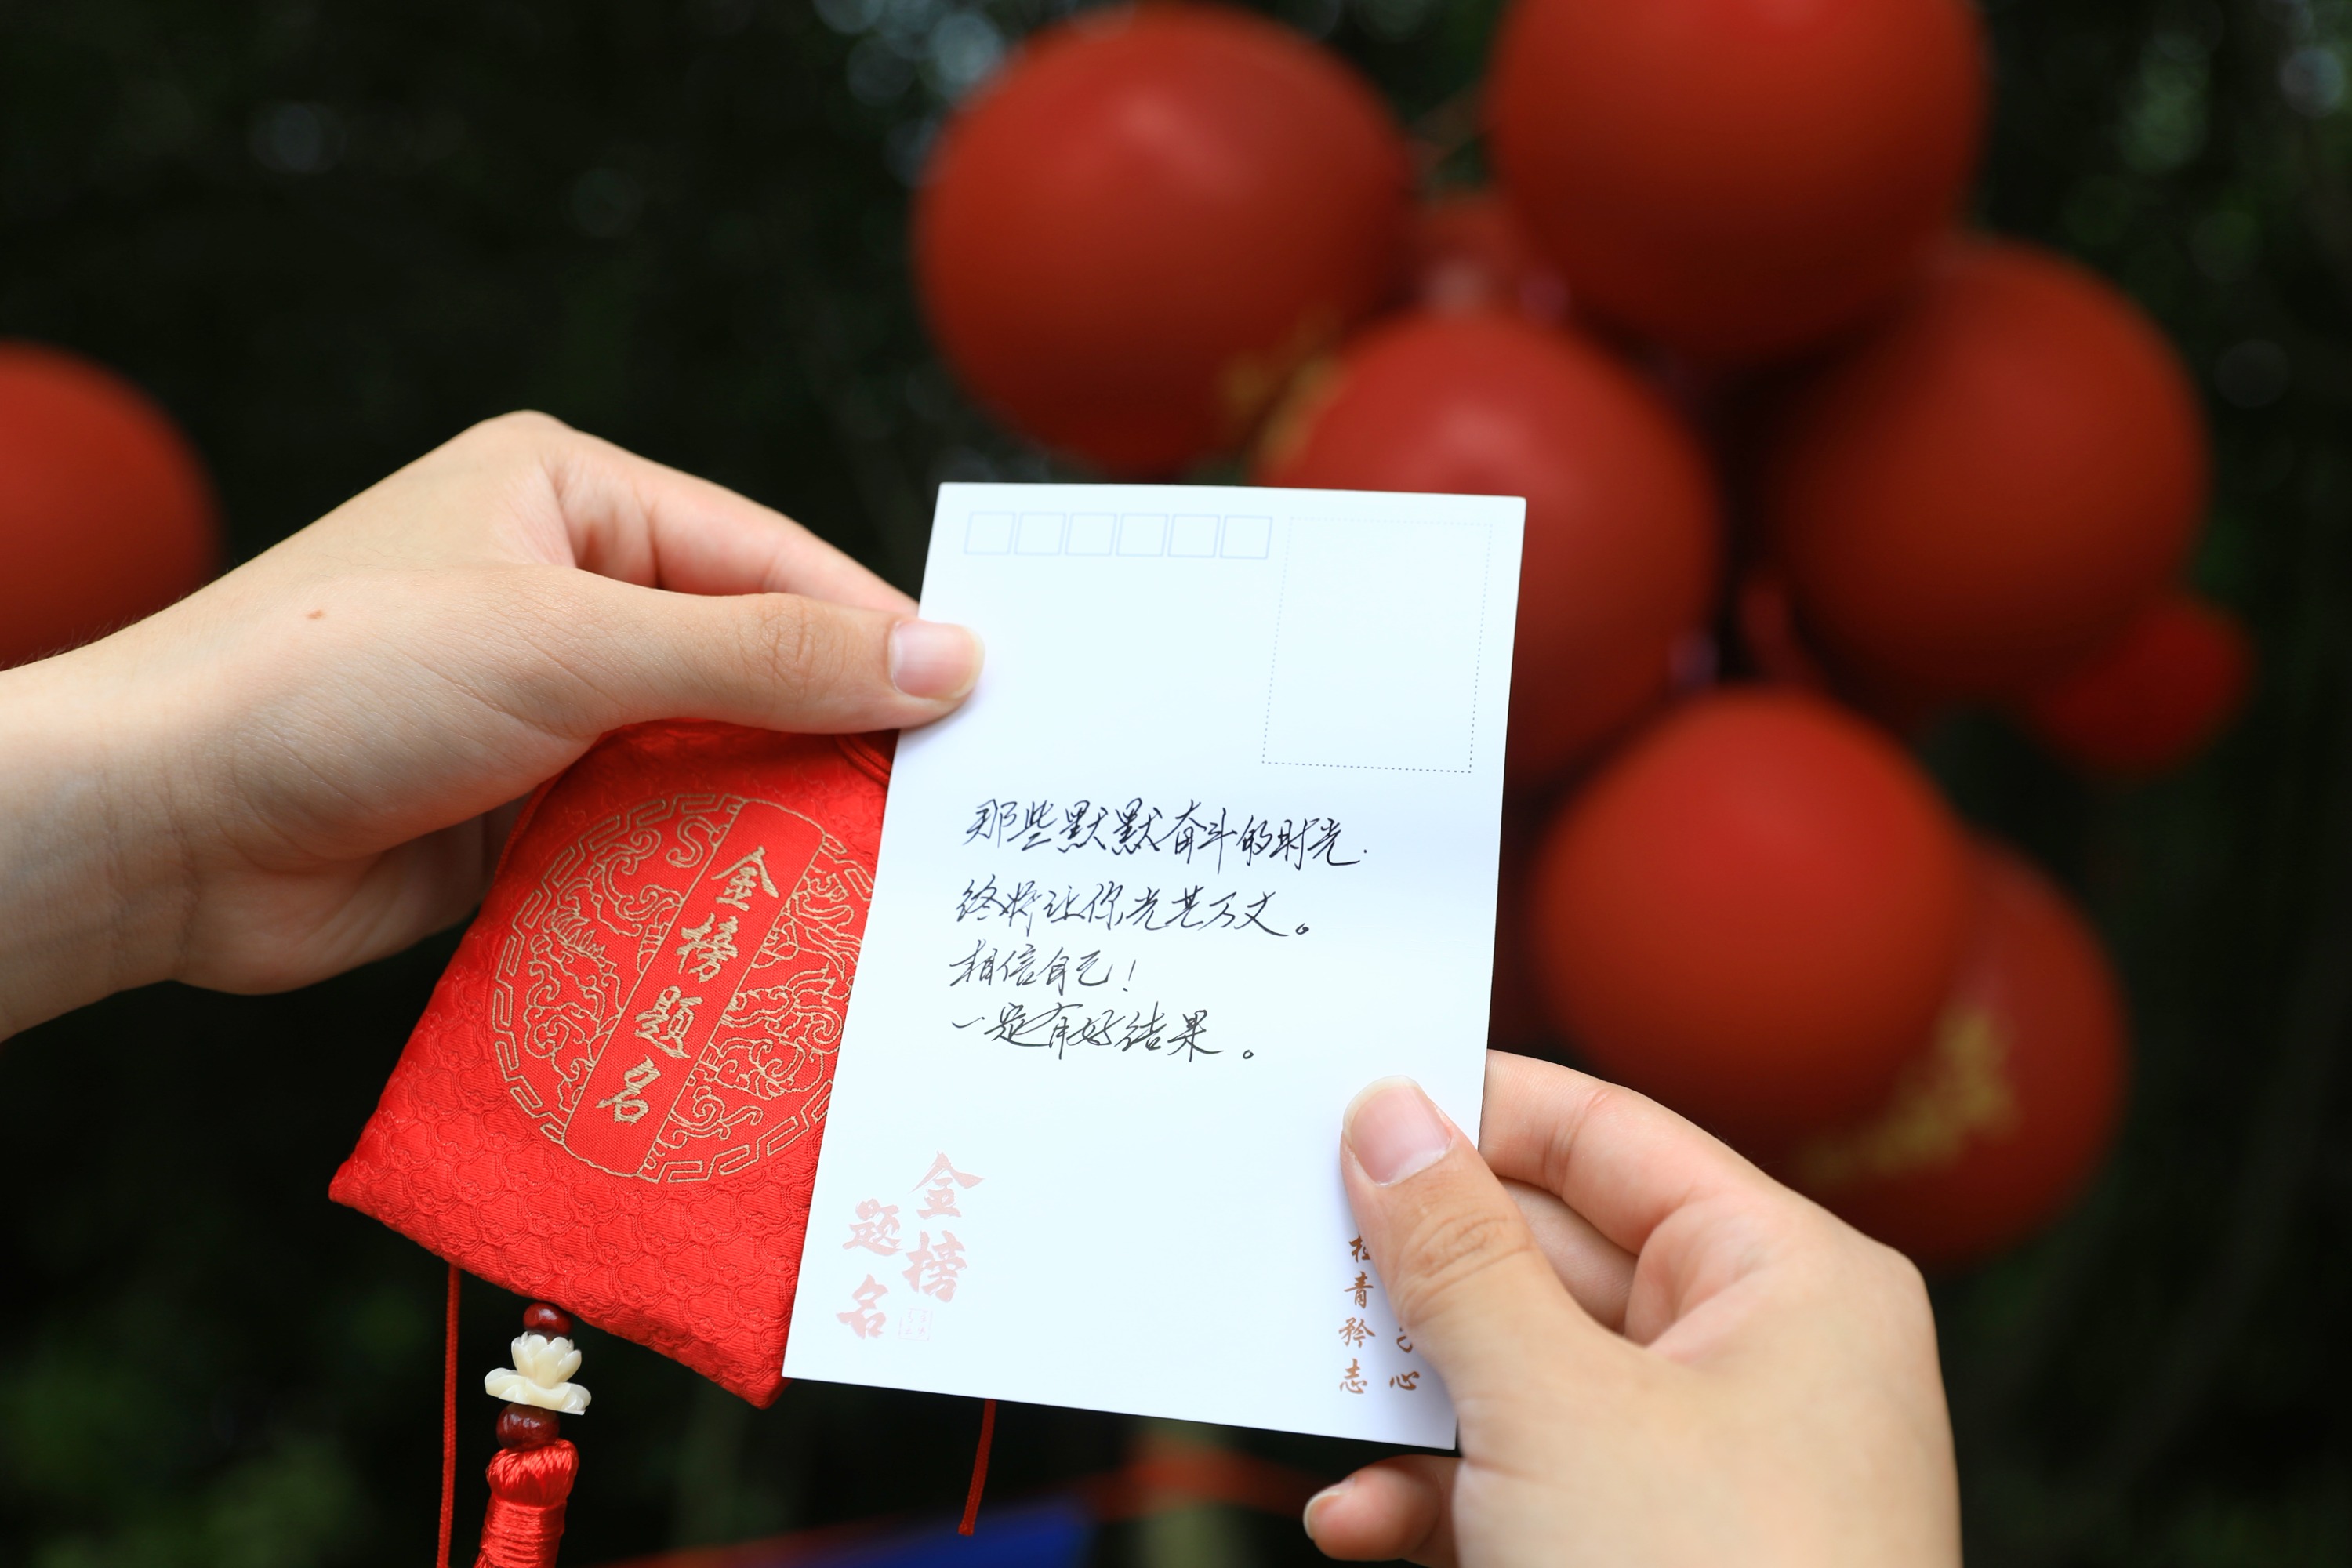 金榜题名
那些默默奋斗的时光.
终将让你光芒万丈。
相信自己!
一定有好结果。
金榜
题名
心
青矜志